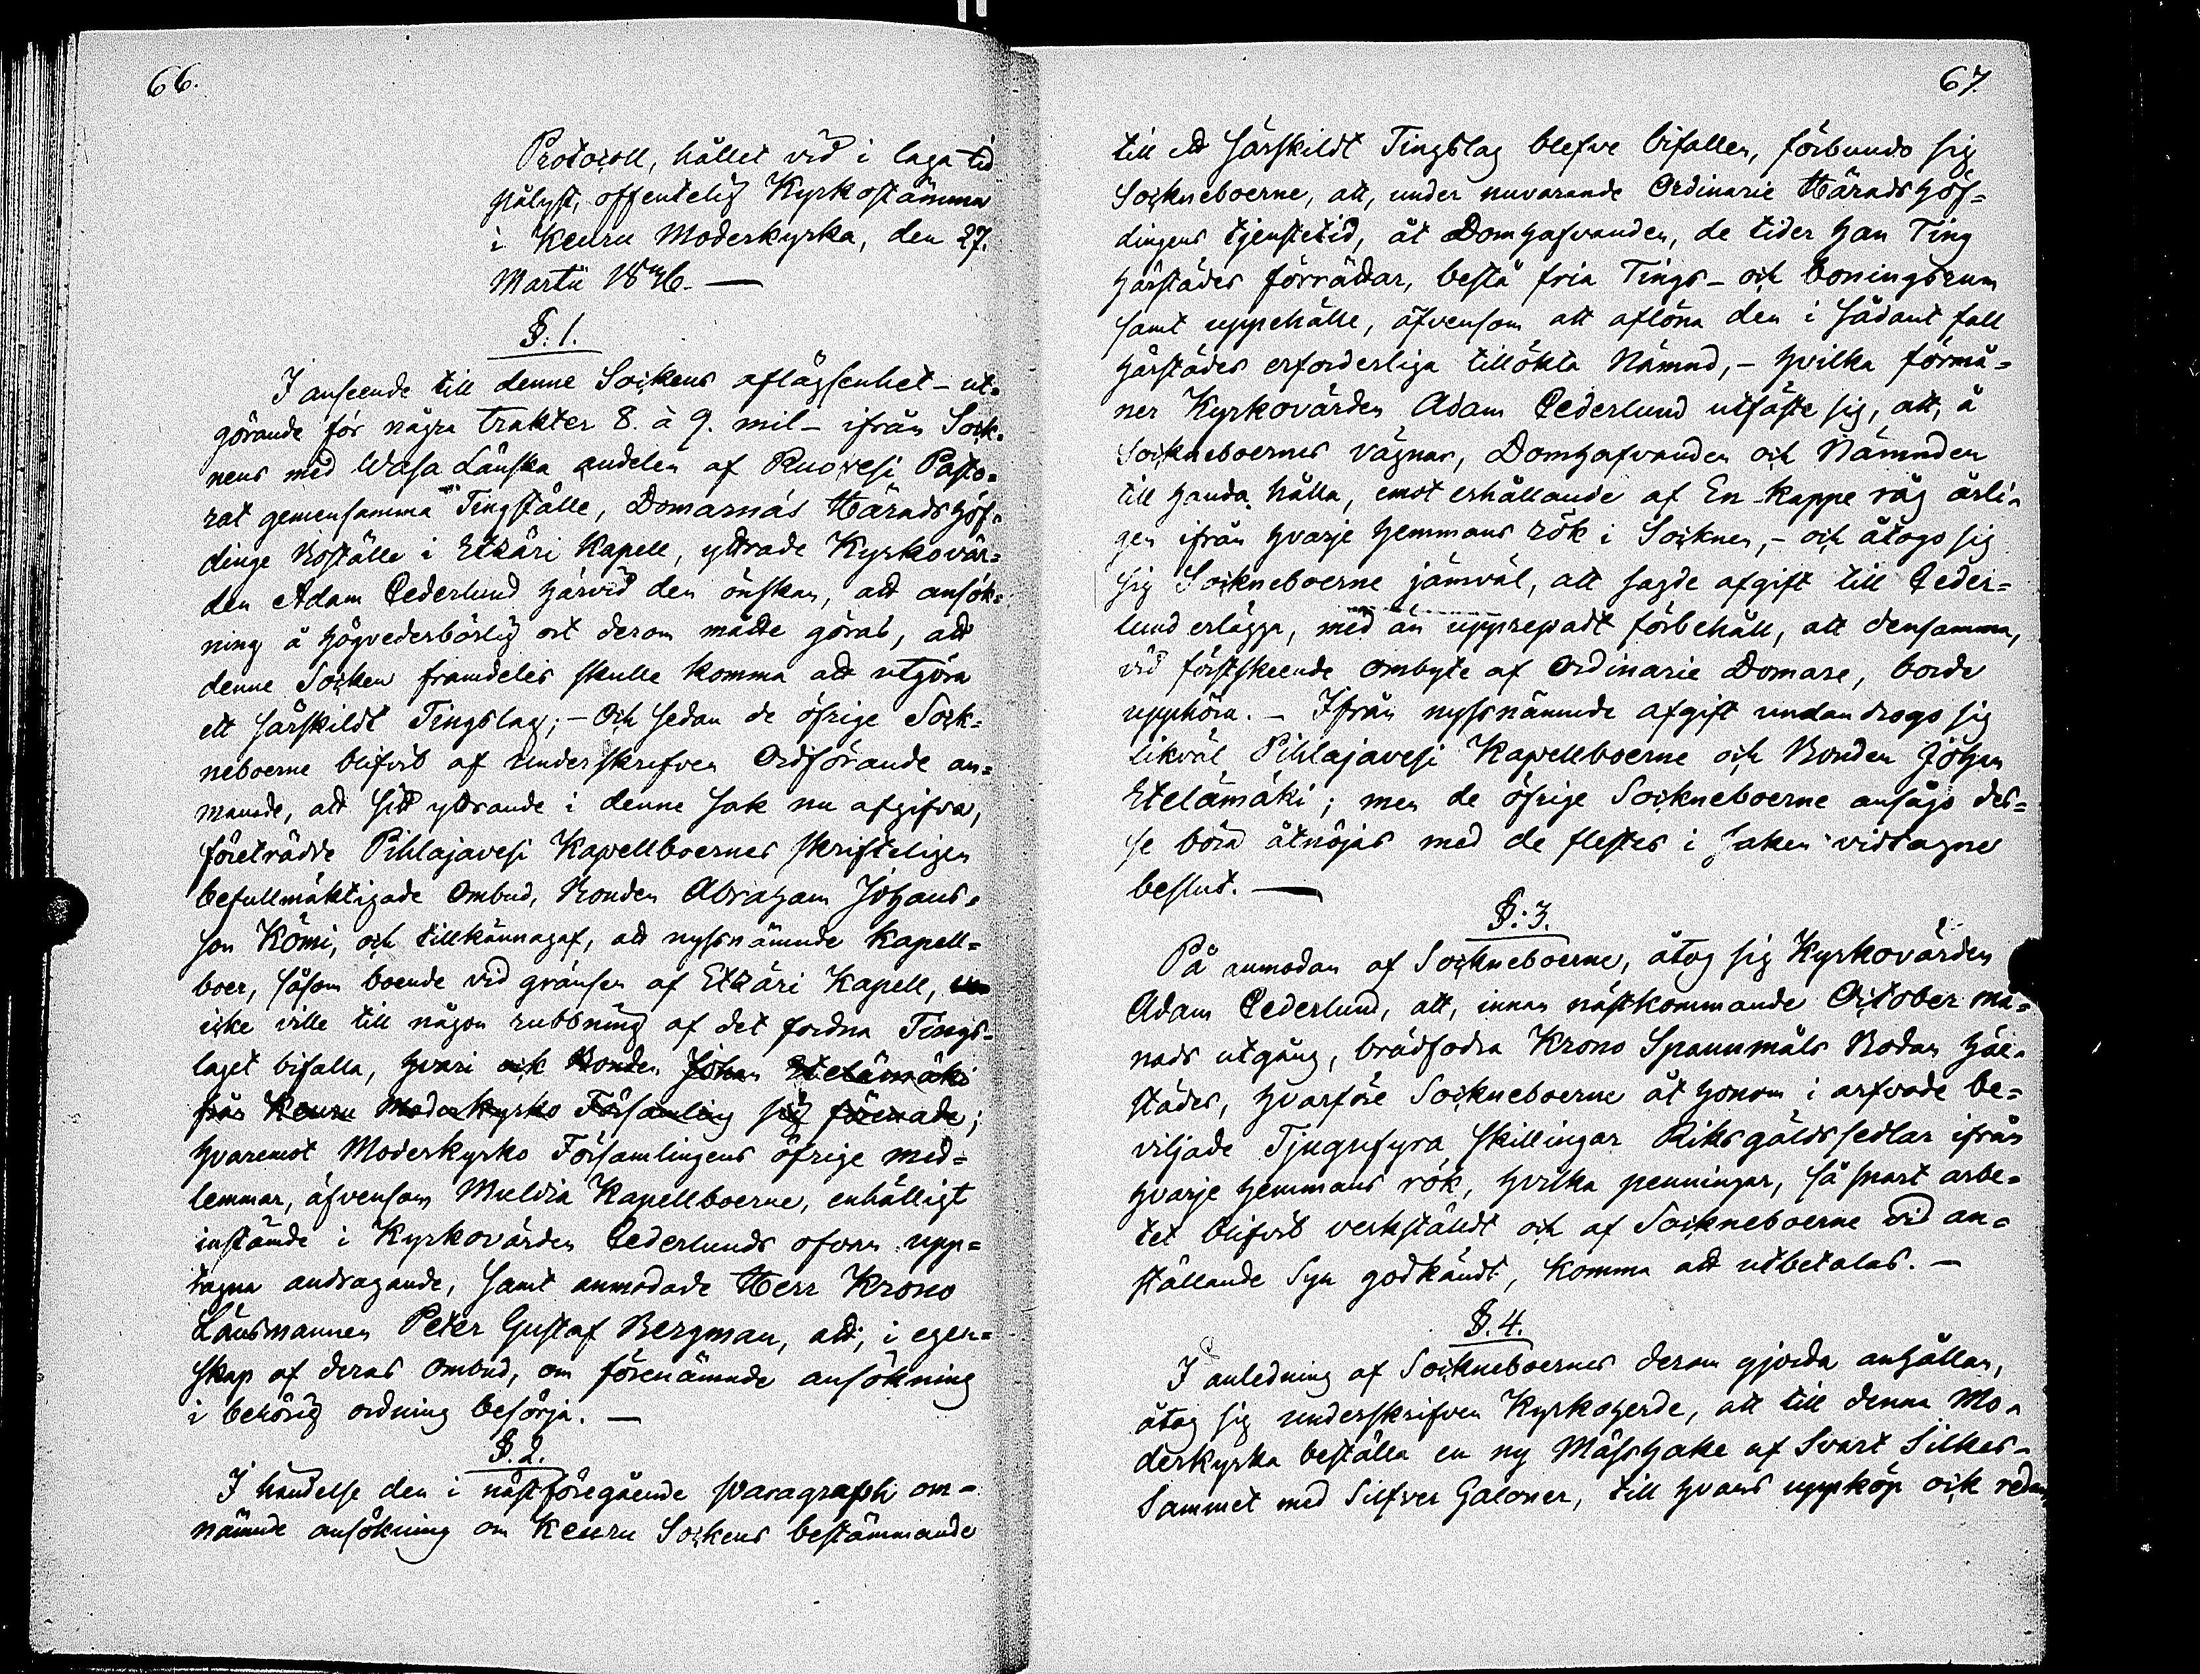 66.
Protocoll, hållet vid i laga tid
pålyst, offentelig Kyrkostämma
i Keuru Moderkyrka, den 27.
Martii 1836. —
§. 1.
I anseende till denne Sockens aflägsenhet – ut=
görande för några trakter 8. à 9. mil – ifrån Sock=
nens med Wasa Länska andelen af Ruovesi Pasto=
rat gemensamma Tingställe, Domarnäs Häradshöf=
dinge Boställe i Etzäri Kapell, yttrade Kyrkovär=
den Adam Cederlund härvid den önskan, att ansök=
ning å högvederbörlig ort derom måtte göras, att
denne Socken framdeles skulle komma att utgöra
ett särskildt Tingslag; – Och sedan de öfrige Sock=
neboerne blifvit af underskrifven Ordförande an=
manade, att sitt yttrande i denne sak nu afgifva,
företrädde Pihlajavesi Kapellboernes skrifteligen
befullmäktigade Ombud, Bonden Abraham Johans=
son Kömi, och tillkännagaf, att nyssnämnde Kapell=
boer, såsom boende vid gränsen af Etzäri Kapell,
icke ville till någon rubbning af det fordna Tings=
laget bifalla, hvari ock Bonden Johan Etelämäki
från Keuru Moderkyrko Församling sig förenade;
hvaremot Moderkyrko Församlingens öfrige med=
lemmar, äfvensom Muldia Kapellboerne, enhälligt
instämde i Kyrkovärden Cederlunds ofvan upp=
tagna andragande, samt anmodade Herr Krono
Länsmannen Peter Gustaf Bergman, att, i egen=
skap af deras Ombud, om förenämnde ansökning
i behörig ordning besörja. —
§. 2.
I händelse den i nästföregående paragraph om=
nämnde ansökning om Keuru Sockens bestämmande
67.
till ett särskildt Tingslag blefve bifallen, förbundo sig
Sockneboerne, att, under nuvarande Ordinarie Häradshöf=
dingens tjenstetid, åt Domhafvanden, de tider han Ting
härstädes förrättar, bestå fria Tings- och boningsrum
samt uppehälle, äfvensom att aflöna den i sådant fall
härstädes erforderliga tillökta Nämnd, – hvilka förmå=
ner Kyrkovärden Adam Cederlund utfäste sig, att, å
Sockneboernes vägnar, Domhafvanden och Nämnden
till handa hålla, emot erhållande af En kappe råg årli=
gen ifrån hvarje hemmans rök i Socknen, – och åtogo sig
sig Sockneboerne jämväl, att sagde afgift till Ceder=
lund erlägga, med än upprepadt förbehåll, att densamma,
vid förstskeende ombyte af Ordinarie Domare, borde
upphöra. – Ifrån nyssnämnde afgift undandrogo sig
likväl Pihlajavesi Kapellboerne och Bonden Johan
Etelämäki; men de öfrige Sockneboerne ansågo des=
se böra åtnöjas med de flestes i saken vidtagne
beslut. —
§. 3.
På anmodan af Sockneboerne, åtog sig Kyrkovärden
Adam Cederlund, att, innan nästkommande October må=
nads utgång, brädfodra Krono Spannmåls Bodan här=
städes, hvarföre Sockneboerne åt honom i arfvode be=
viljade Tjugufyra skillingar Riksgäldssedlar ifrån
hvarje hemmans rök, hvilka penningar, så snart arbe=
tet blifvit verkstäldt och af Sockneboerne vid an=
ställande Syn godkändt, komma att utbetalas. —
§. 4.
I anledning af Sockneboernes derom gjorda anhållan,
åtog sig underskrifven Kyrkoherde, att till denna Mo=
derkyrka beställa en ny Mässhake af Svart Silkes=
Sammet med Silfver Galoner, till hvars uppköp ock redan